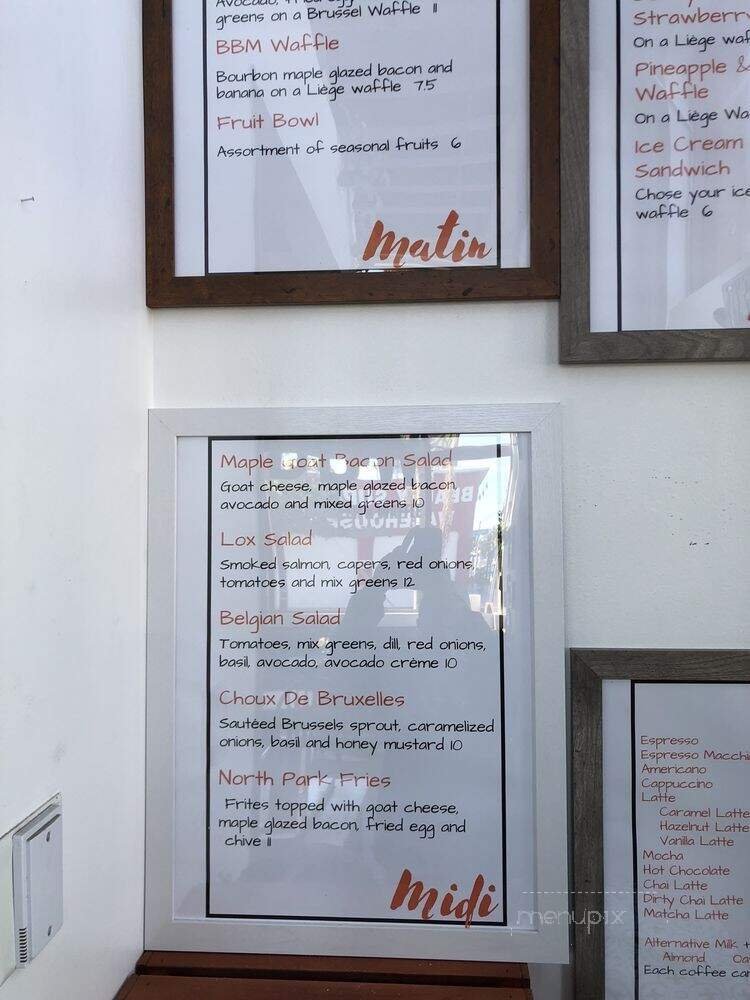 Avocado, fried egg
greens on a Brussel Waffle 11
BBM Waffle
Bourbon maple glazed bacon and
banana on a Liège waffle 7.5
Fruit Bowl
Assortment of seasonal fruits 6
Matin
Strawberry
On a Liège waf
Pineapple &
Waffle
On a Liège Wa
Ice Cream
Sandwich
Chose your ice
waffle 6
Maple Goat Bacon Salad
Goat cheese, maple glazed bacon,
avocado and mixed greens 10
Lox Salad
Smoked salmon, capers, red onions,
tomatoes and mix greens 12
Belgian Salad
Tomatoes, mix greens, dill, red onions,
basil, avocado, avocado crème 10
Choux De Bruxelles
Sautéed Brussels sprout, caramelized
onions, basil and honey mustard 10
North Park Fries
Frites topped with goat cheese,
maple glazed bacon, fried egg and
chive 11
Midi
Espresso
Espresso Macchi
Americano
Cappuccino
Latte
Caramel Latte
Hazelnut Latte
Vanilla Latte
Mocha
Hot Chocolate
Chai Latte
Dirty Chai Latte
Matcha Latte
Alternative Milk +
Almond Oa
Each coffee ca
menupix